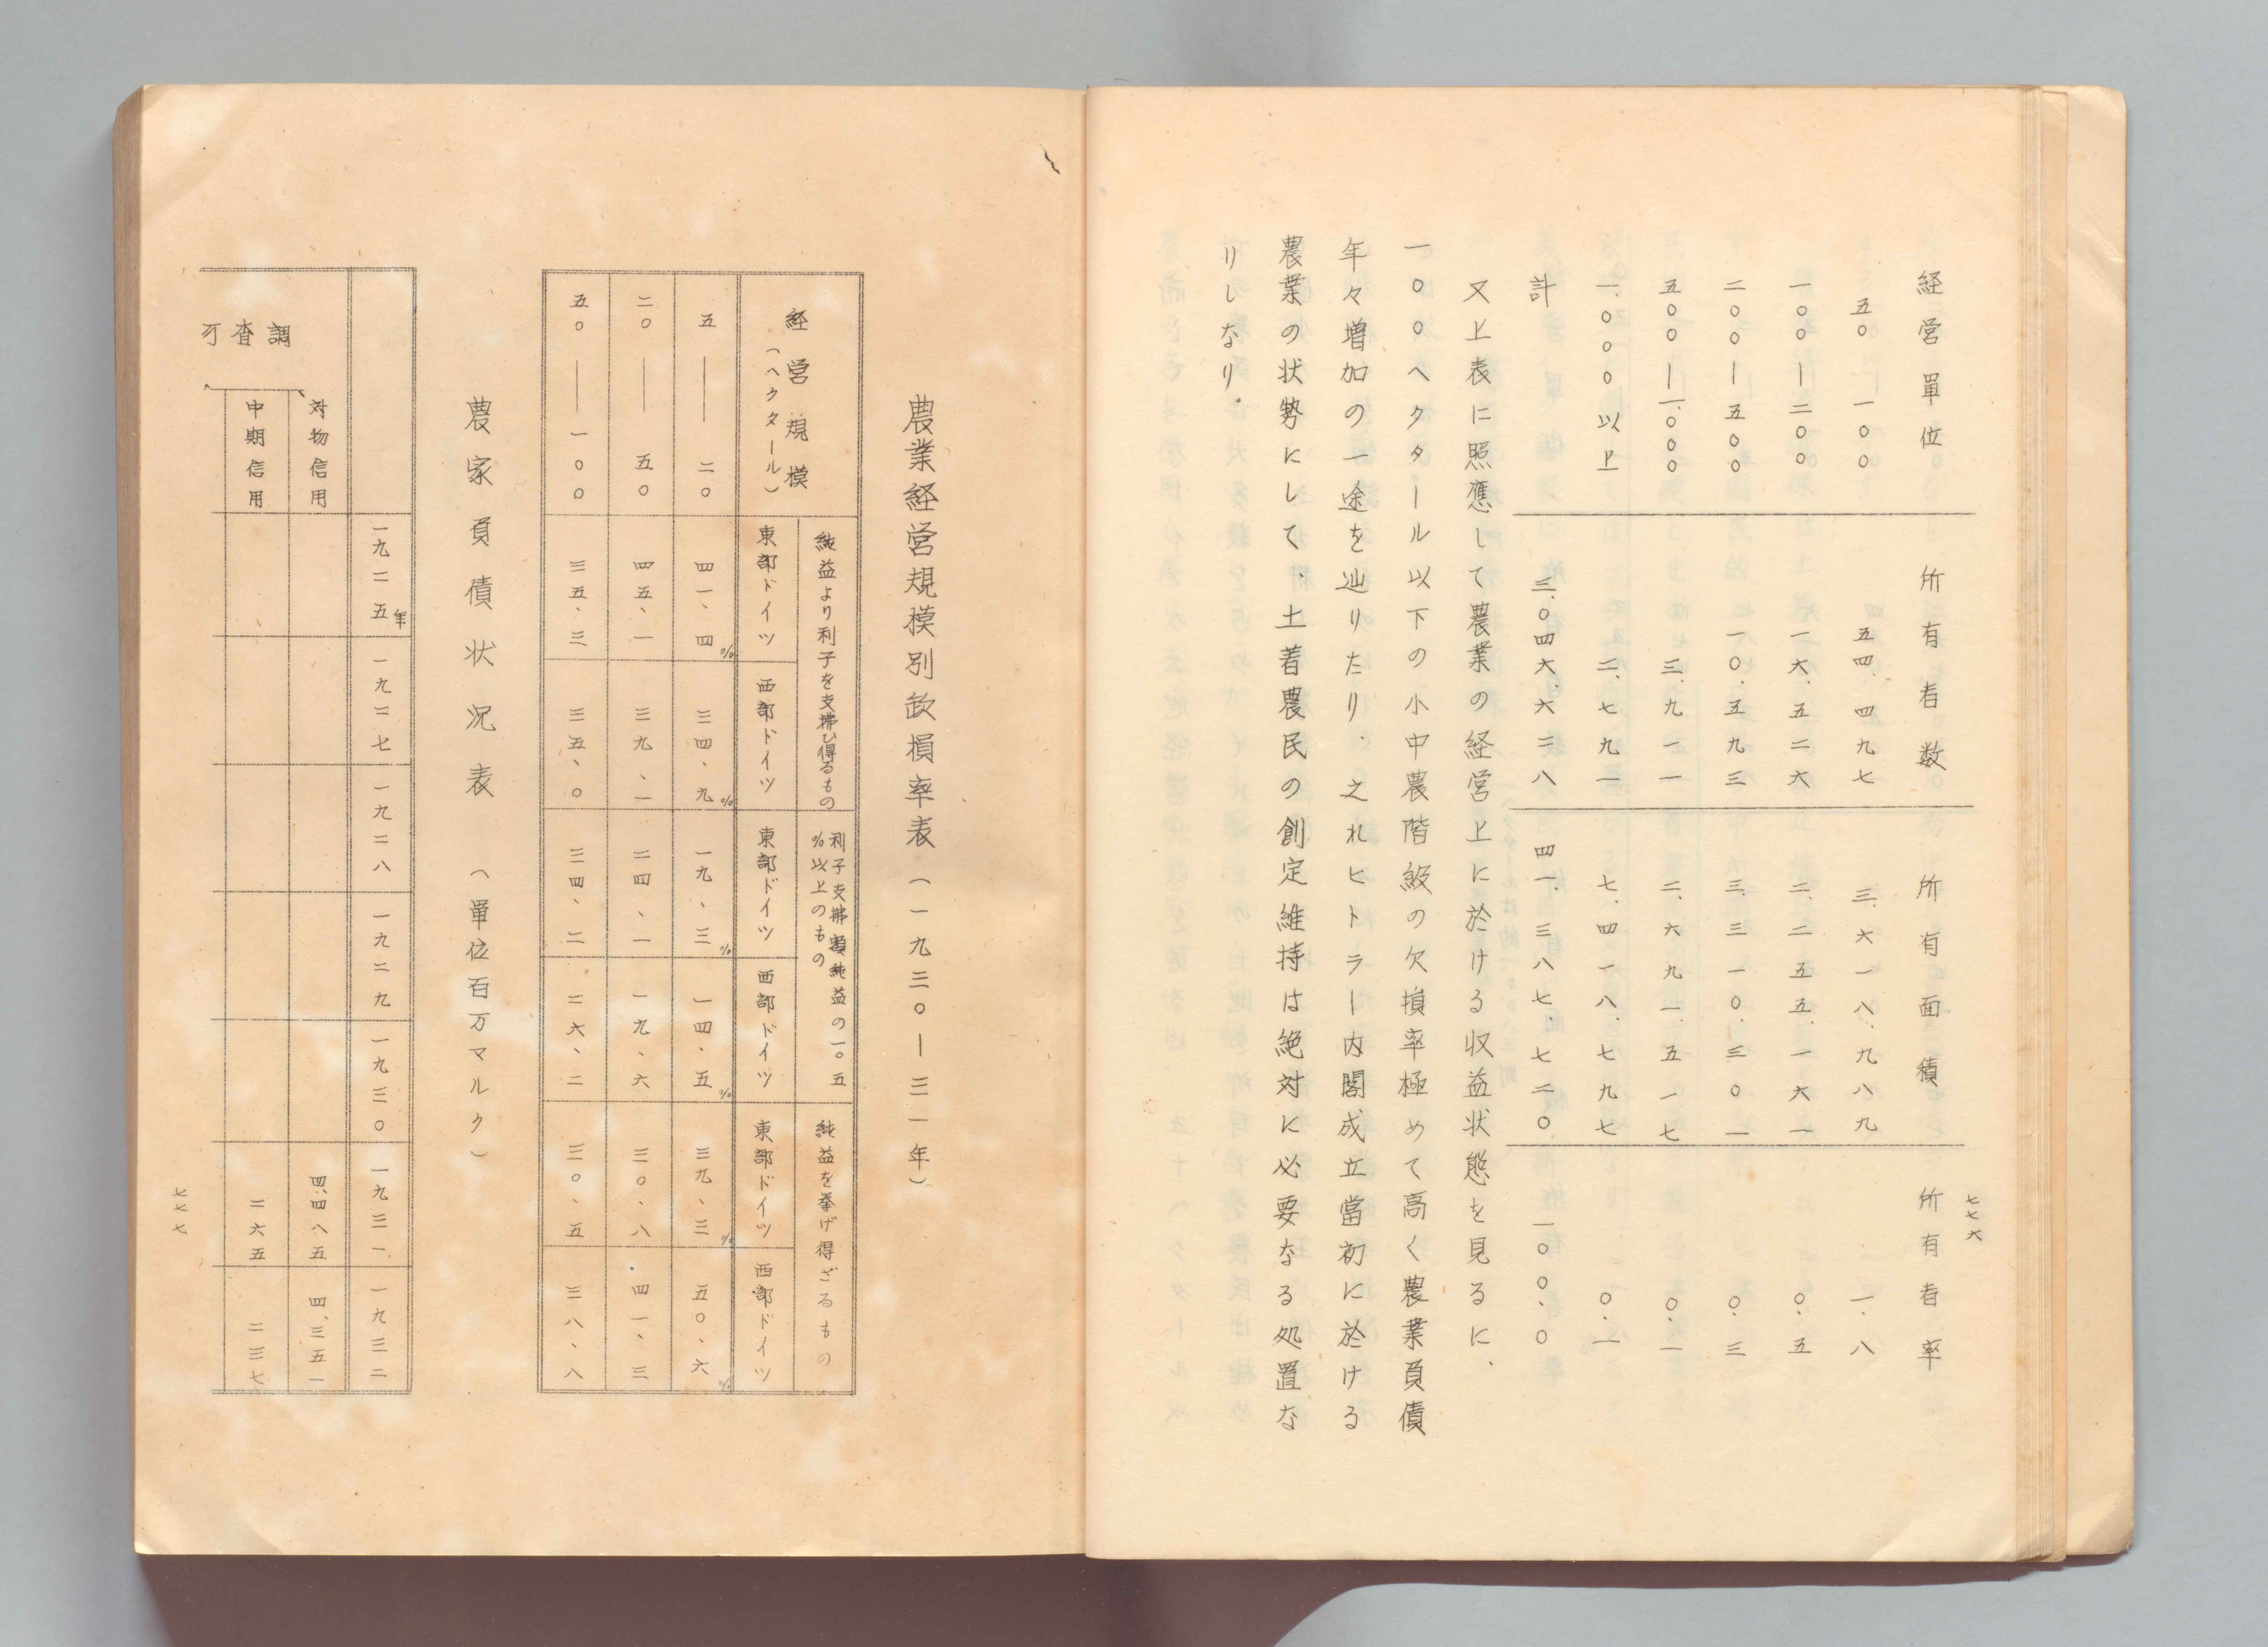 七七六
経営單位　所有者数　所有面積　所有者率
五〇—一〇〇　五四、四九七　三、六一八、九八九　一、八
一〇〇—二〇〇　一六、五二六　二、二五五、一六一　〇、五
二〇〇—五〇〇　一〇、五九三　三、三一〇、三〇一　〇、三
五〇〇—一、〇〇〇　三、九一一　二、六九一、五一七　〇、一
一、〇〇〇以上　二、七九一　七、四一八、七九七　〇、一
計　三、〇四六、六二八　四一、三八七、七二〇　一〇〇、〇
又上表に照應して農業の経営上に於ける収益状態を見るに、
一〇〇ヘクタール以下の小中農階級の欠損率極めて高く農業負債
年々増加の一途を辿りたり、之れヒトラー内閣成立當初に於ける
農業の状勢にして、土着農民の創定維持は絶対に必要なる処置な
りしなり。
農業経営規模別欠損率表（一九三〇—三一年）
経営規模（ヘクタール）　純益より利子を支拂ひ得るもの　利子支拂額純益の一〇五%以上のもの　純益を挙げ得ざるもの
東部ドイツ　西部ドイツ　東部ドイツ　西部ドイツ　東部ドイツ　西部ドイツ
五——二〇　四一、四%　三四、九%　一九、三%　一四、五%　三九、三%　五〇、六%
二〇——五〇　四五、一　三九、一　二四、一　一九、六　三〇、八　四一、三
五〇——一〇〇　三五、三　三五、〇　三四、二　二六、二　三〇、五　三八、八
農家負債状況表（單位百万マルク）
一九二五年　一九二七　一九二八　一九二九　一九三〇　一九三一　一九三二
調査
対物信用　四、四八五　四、三五一
中期信用　二六五　二三七
七七七